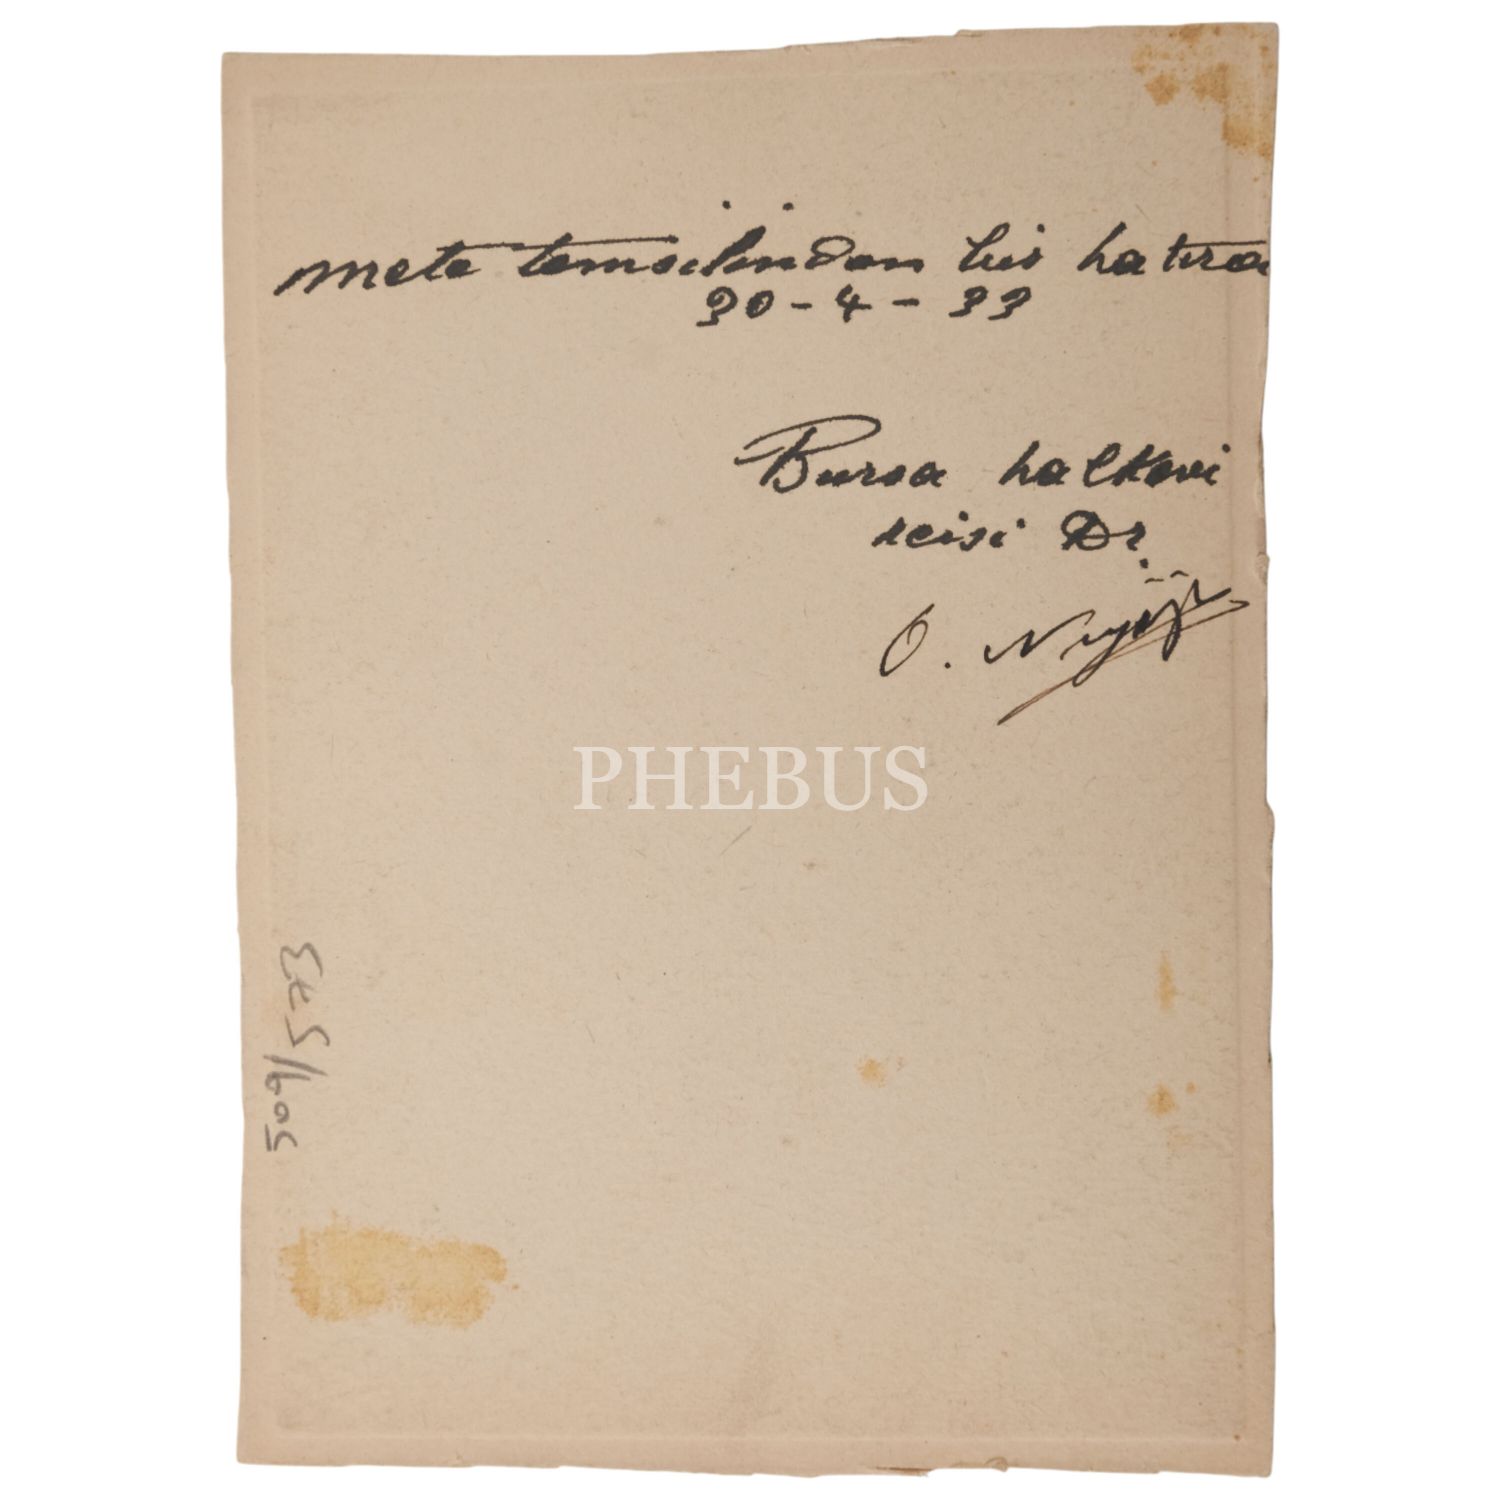 Mete temsilinden bir hatıra
30-4-33
Bursa halkevi
reisi Dr.
O.
PHEBUS